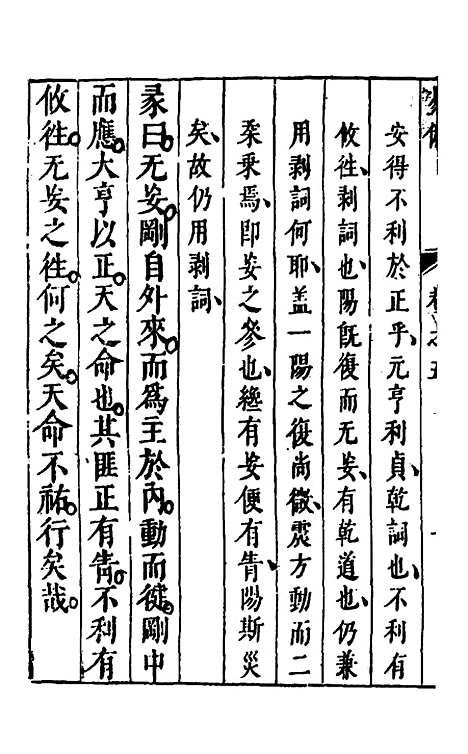 卷之五
安得不利於正乎、元亨利貞、乾詞也、不利有
攸徃、剥詞也、陽旣復而无妄、有乾道也、仍兼
用剥詞何耶、盖一陽之復尚微、震方動而二
柔乗焉、卽妄之參也、纔有妄便有眚、陽斯災
矣、故仍用剥詞、
彖曰。无妄。剛自外來。而爲主於內。動而健。剛中
而應。大亨以正。天之命也。其匪正有眚。不利有
攸徃。无妄之徃。何之矣。天命不祐。行矣哉。